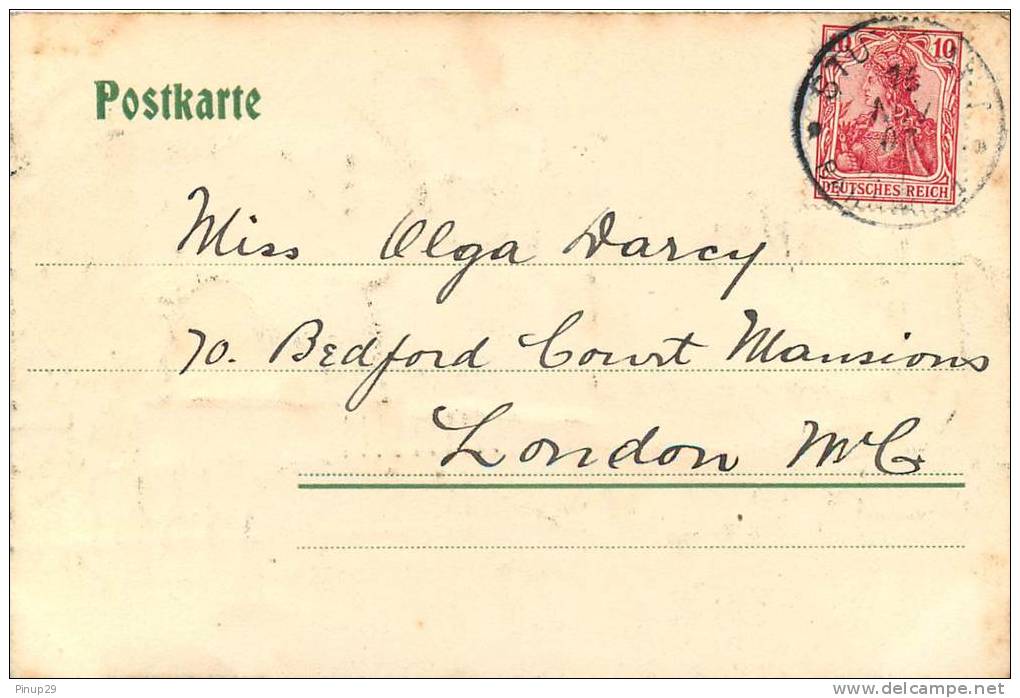 Postkarte
10 10
DEUTSCHES REICH
Miss Olga Darcy
70. Bedford Court Mansions
London WC
Pinup29
www.delcampe.net